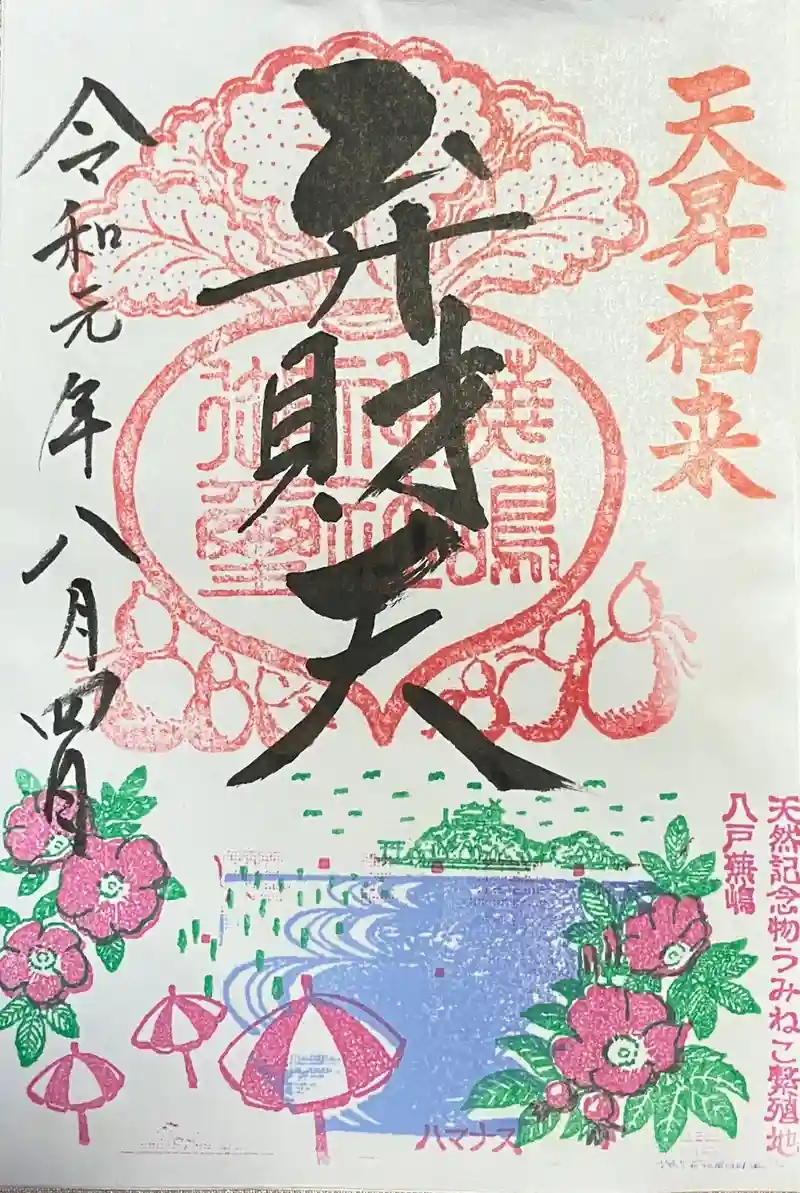 天昇福来
弁財天
蕪嶋
神社
御璽
令和元年八月四日
天然記念物うみねこ繁殖地
八戸蕪嶋
ハマナス